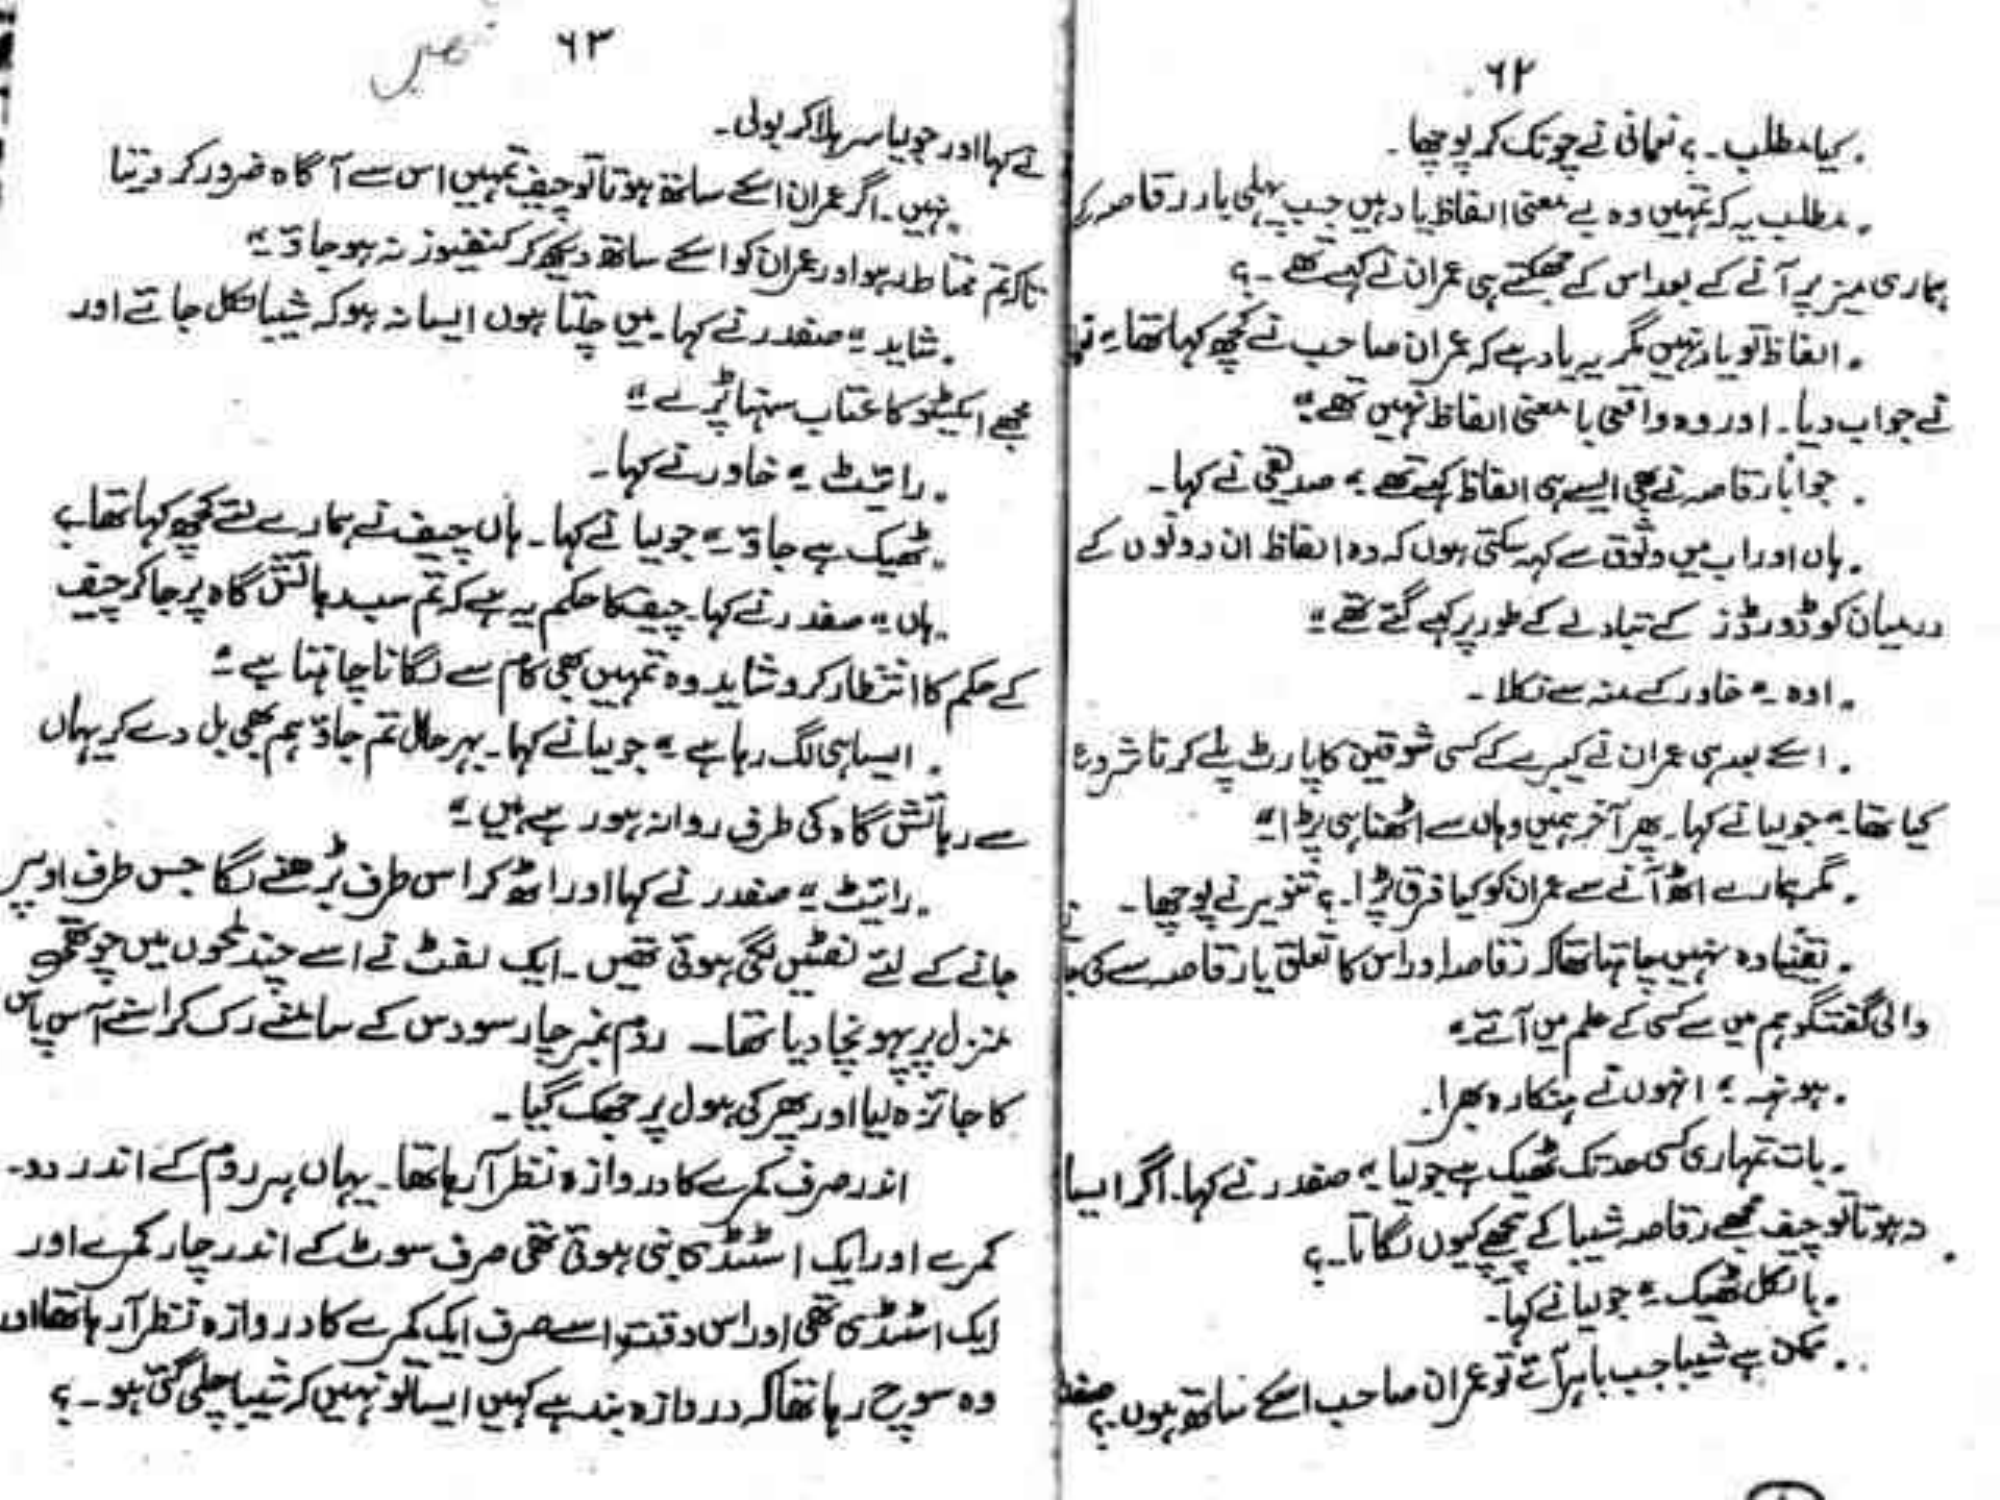 ۶۲
"کیا مطلب۔؟ نعمانی نے چونک کر پوچھا۔
"مطلب یہ کہ تمہیں وہ بے معنی الفاظ یاد ہیں جب پہلی بار رقاصہ کے
ہماری میز پر آنے کے بعد اس کے جھکتے ہی عمران نے کہے تھے۔؟
"الفاظ تو یاد نہیں مگر یہ یاد ہے کہ عمران صاحب نے کچھ کہا تھا"
نے جواب دیا۔ اور وہ واقعی با معنی الفاظ نہیں تھے"
"جواباً رقاصہ نے بھی ایسے ہی الفاظ کہے تھے" صدیقی نے کہا۔
"ہاں اور اب میں وثوق سے کہہ سکتی ہوں کہ وہ الفاظ ان دونوں کے
درمیان کوڈورڈز کے تبادلے کے طور پر کہے گئے تھے"
"اوہ۔" خاور کے منہ سے نکلا۔
"اسکے بعد ہی عمران نے کیبرے کے کسی شوقین کا پارٹ پلے کرنا شروع
کیا تھا" جولیا نے کہا۔ پھر آخر ہمیں وہاں سے اٹھنا ہی پڑا"
"مگر ہمارے اٹھ آنے سے عمران کو کیا فرق پڑا۔؟ تنویر نے پوچھا۔
"یقیناً وہ نہیں چاہتا تھا کہ رقاصہ اور اس کا تعلق یا رقاصہ سے کی جا
والی گفتگو ہم میں سے کسی کے علم میں آئے"
"ہونہہ" انہوں نے ہنکارہ بھرا۔
"بات تمہاری کسی حد تک ٹھیک ہے جولیا" صفدر نے کہا۔ اگر ایسا
نہ ہوتا تو چیف مجھے رقاصہ شیبا کے پیچھے کیوں لگاتا۔؟
"بالکل ٹھیک" جولیا نے کہا۔
"ممکن ہے شیبا جب باہر آئے تو عمران صاحب اسکے ساتھ ہوں۔؟ صفدر
۶۳
نے کہا اور جولیا سر ہلا کر بولی۔
"نہیں۔ اگر عمران اسکے ساتھ ہوتا تو چیف تمہیں اس سے آگاہ ضرور کر دیتا
تاکہ تم محتاط رہو اور عمران کو اسکے ساتھ دیکھ کر کنفیوز نہ ہو جاؤ"
"شاید" صفدر نے کہا۔ میں چلتا ہوں ایسا نہ ہو کہ شیبا نکل جائے اور
مجھے ایکسٹو کا عتاب سہنا پڑے"
"رائیٹ" خاور نے کہا۔
"ٹھیک ہے جاؤ" جولیا نے کہا۔ ہاں چیف نے ہمارے لئے کچھ کہا تھا؟
"ہاں" صفدر نے کہا۔ چیف کا حکم یہ ہے کہ تم سب رہائش گاہ پر جا کر چیف
کے حکم کا انتظار کرو شاید وہ تمہیں بھی کام سے لگانا چاہتا ہے"
"ایسا ہی لگ رہا ہے" جولیا نے کہا۔ بہرحال تم جاؤ ہم بھی بل دے کر یہاں
سے رہائش گاہ کی طرف روانہ ہو رہے ہیں"
"رائیٹ" صفدر نے کہا اور اٹھ کر اس طرف بڑھنے لگا جس طرف اوپر
جانے کے لئے لفٹیں لگی ہوئی تھیں۔ ایک لفٹ نے اسے چند لمحوں میں چوتھی
منزل پر پہونچا دیا تھا۔ روم نمبر چار سو دس کے سامنے رک کر اسنے آس پاس
کا جائزہ لیا اور پھر کی ہول پر جھک گیا۔
اندر صرف کمرے کا دروازہ نظر آ رہا تھا۔ یہاں ہر روم کے اندر دو
کمرے اور ایک اسٹڈی بنی ہوئی تھی صرف سوٹ کے اندر چار کمرے اور
ایک اسٹڈی تھی اور اس وقت اسے صرف ایک کمرے کا دروازہ نظر آ رہا تھا اور
وہ سوچ رہا تھا کہ دروازہ بند ہے کہیں ایسا تو نہیں کہ شیبا چلی گئی ہو۔؟